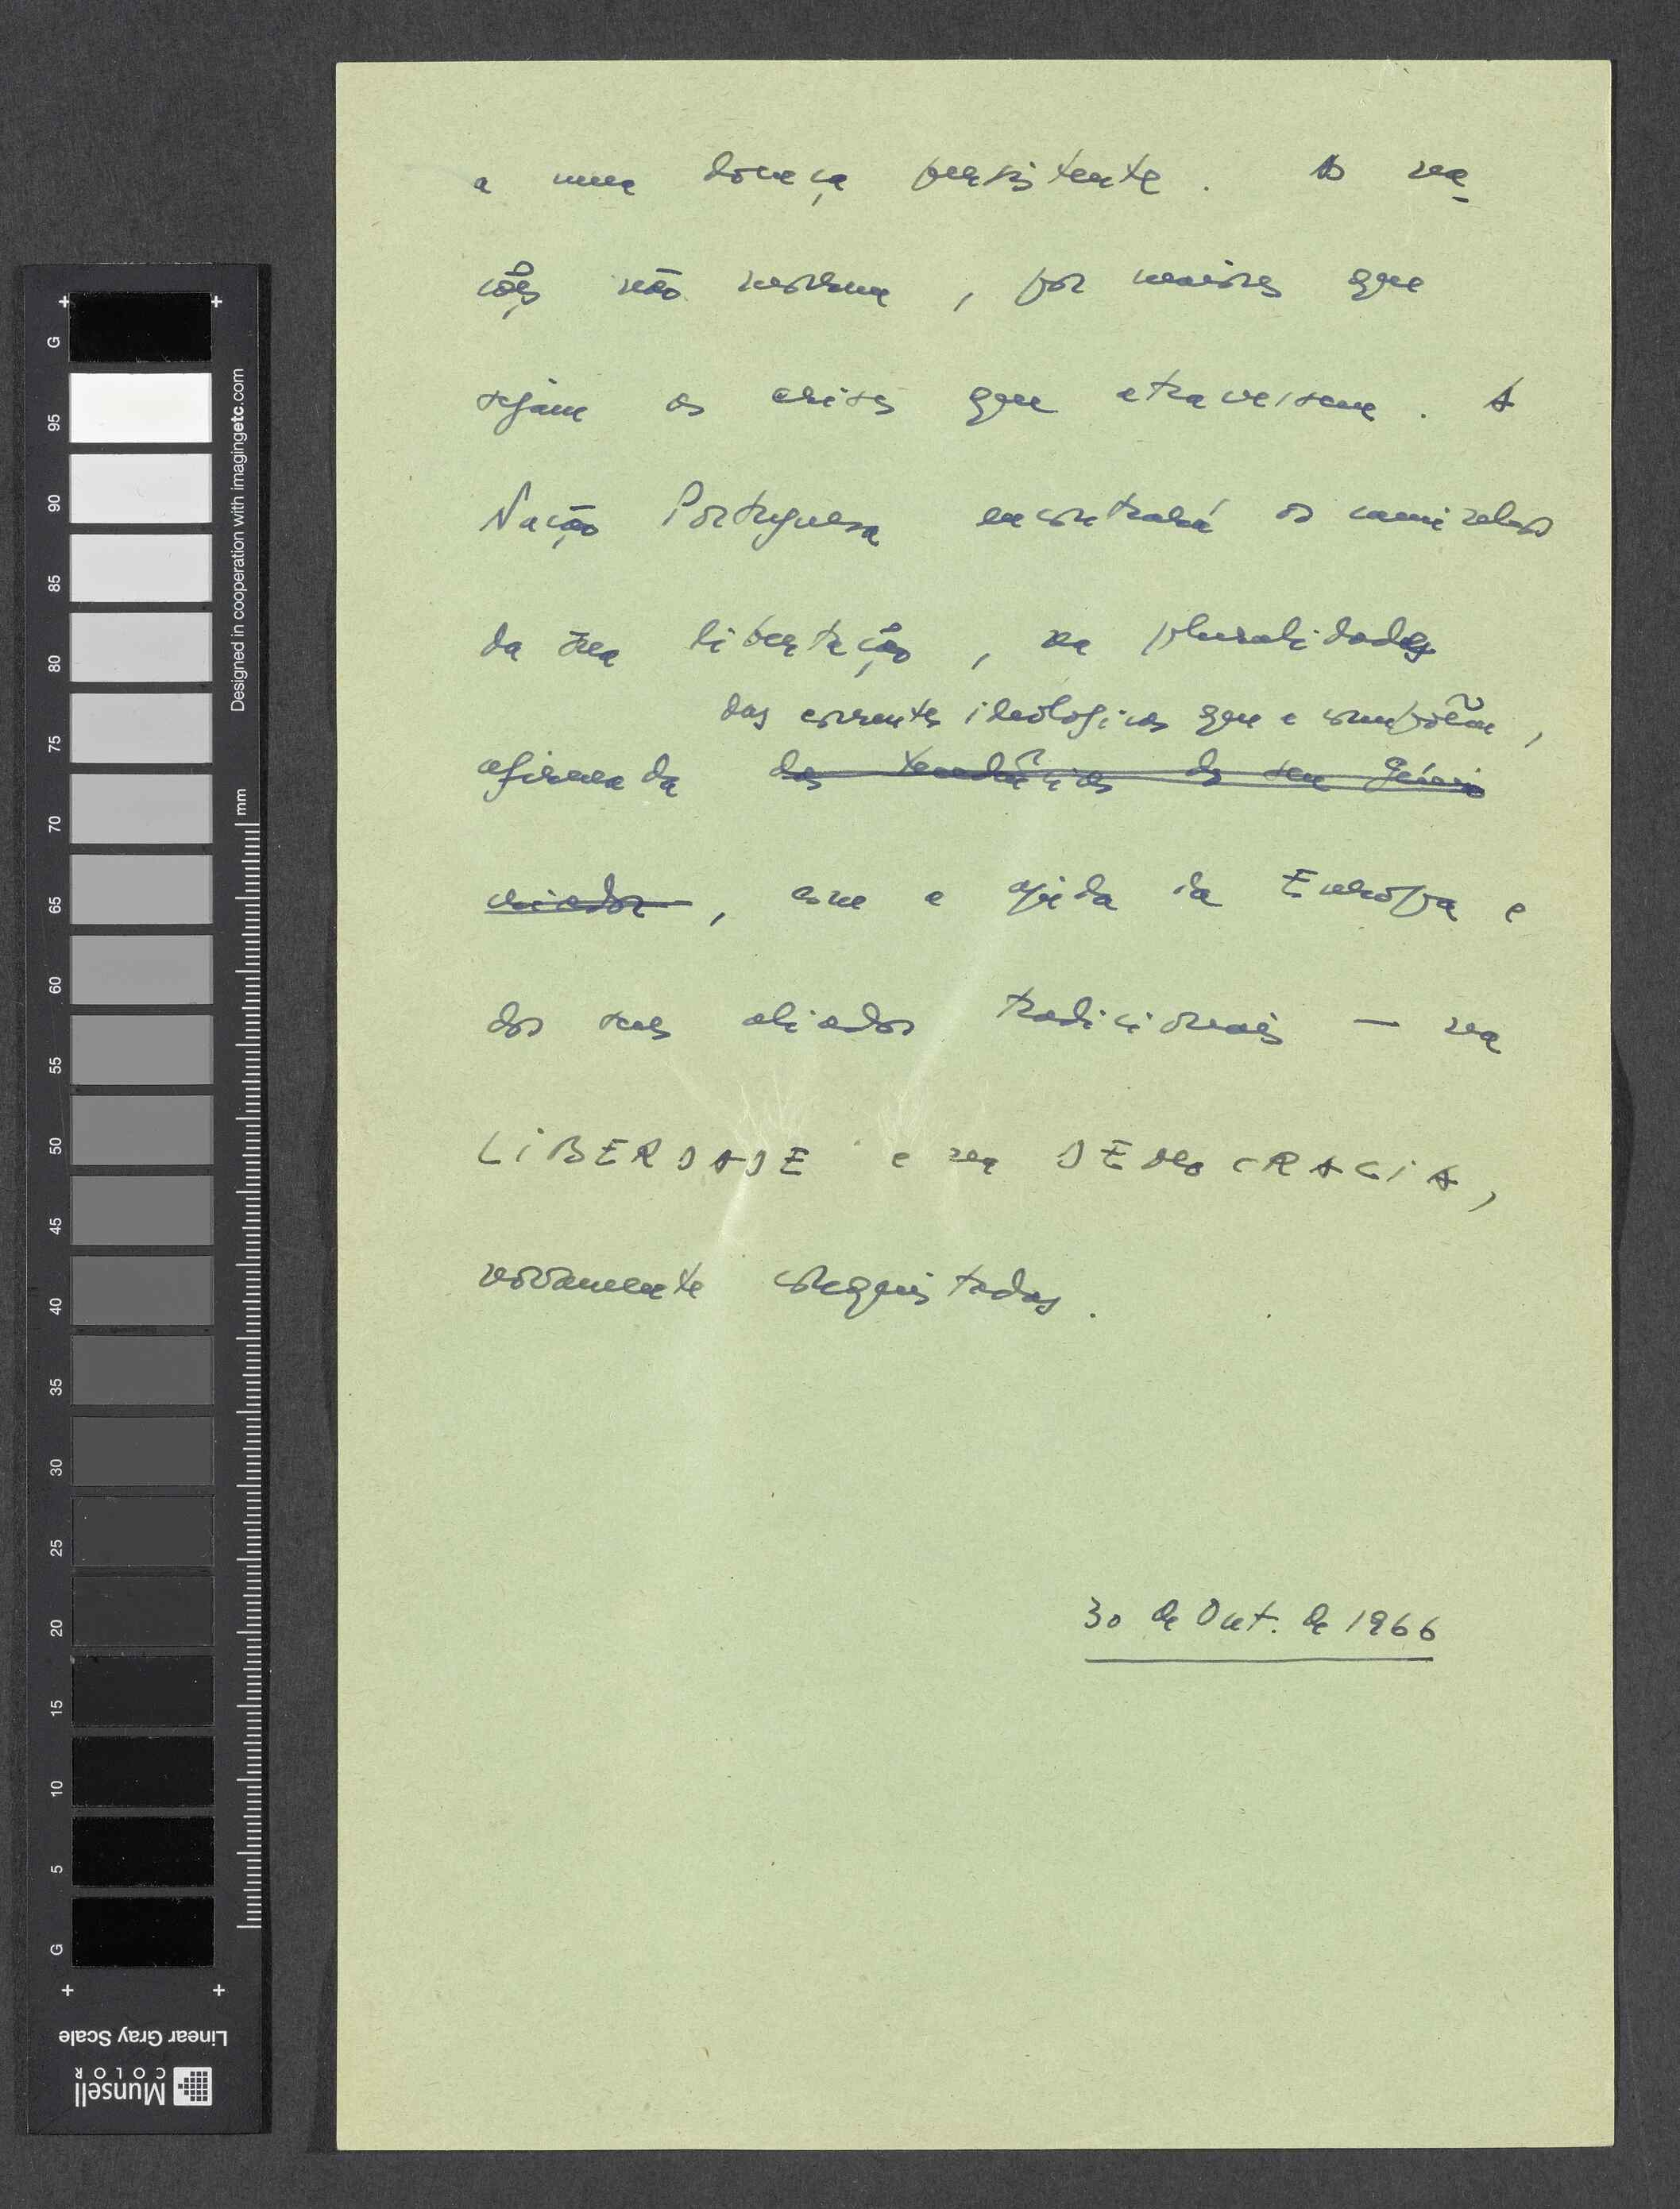 a uma doença persistente. As na-
ções não morrem, por maiores que
sejam as crises que atravessem. A
Nação Portuguesa encontrará os caminhos
da sua libertação, na pluralidade
das correntes ideológicas que a compõem,
afirmada das tendências do seu génio
criador, com a ajuda da Europa e
dos seus aliados tradicionais — na
LIBERDADE e na DEMOCRACIA,
novamente conquistadas.
30 de Out. de 1966
G
95
90
85
80
75
70
65
60
55
50
45
40
35
30
25
20
15
10
5
G
Designed in cooperation with imagingetc.com
mm
Linear Gray Scale
Munsell
COLOR